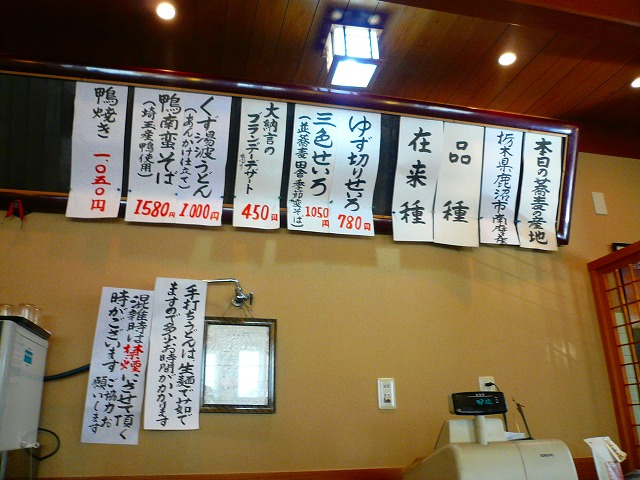 本日の蕎麦の産地
栃木県鹿沼市南摩産
品種
在来種
ゆず切りせいろ
780円
三色せいろ
(並蕎麦田舎季節変そば)
1050円
大納言の
ブランデーデザート
450円
くず湯波うどん
(あんかけ仕立て)
1000円
鴨南蛮そば
(埼玉産鴨使用)
1580円
鴨焼き
一〇五〇円
手打ちうどんは生麺で茹で
ますので多少お時間がかかります
混雑時は禁煙にさせて頂く
時がございますご協力お
願いします